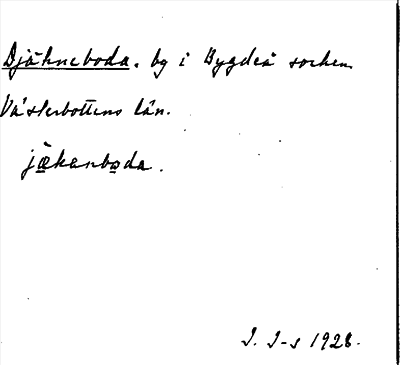 Djäkneboda. by i Bygdeå socken
Västerbottens län.
jäkanboda.
J. J-s 1928.